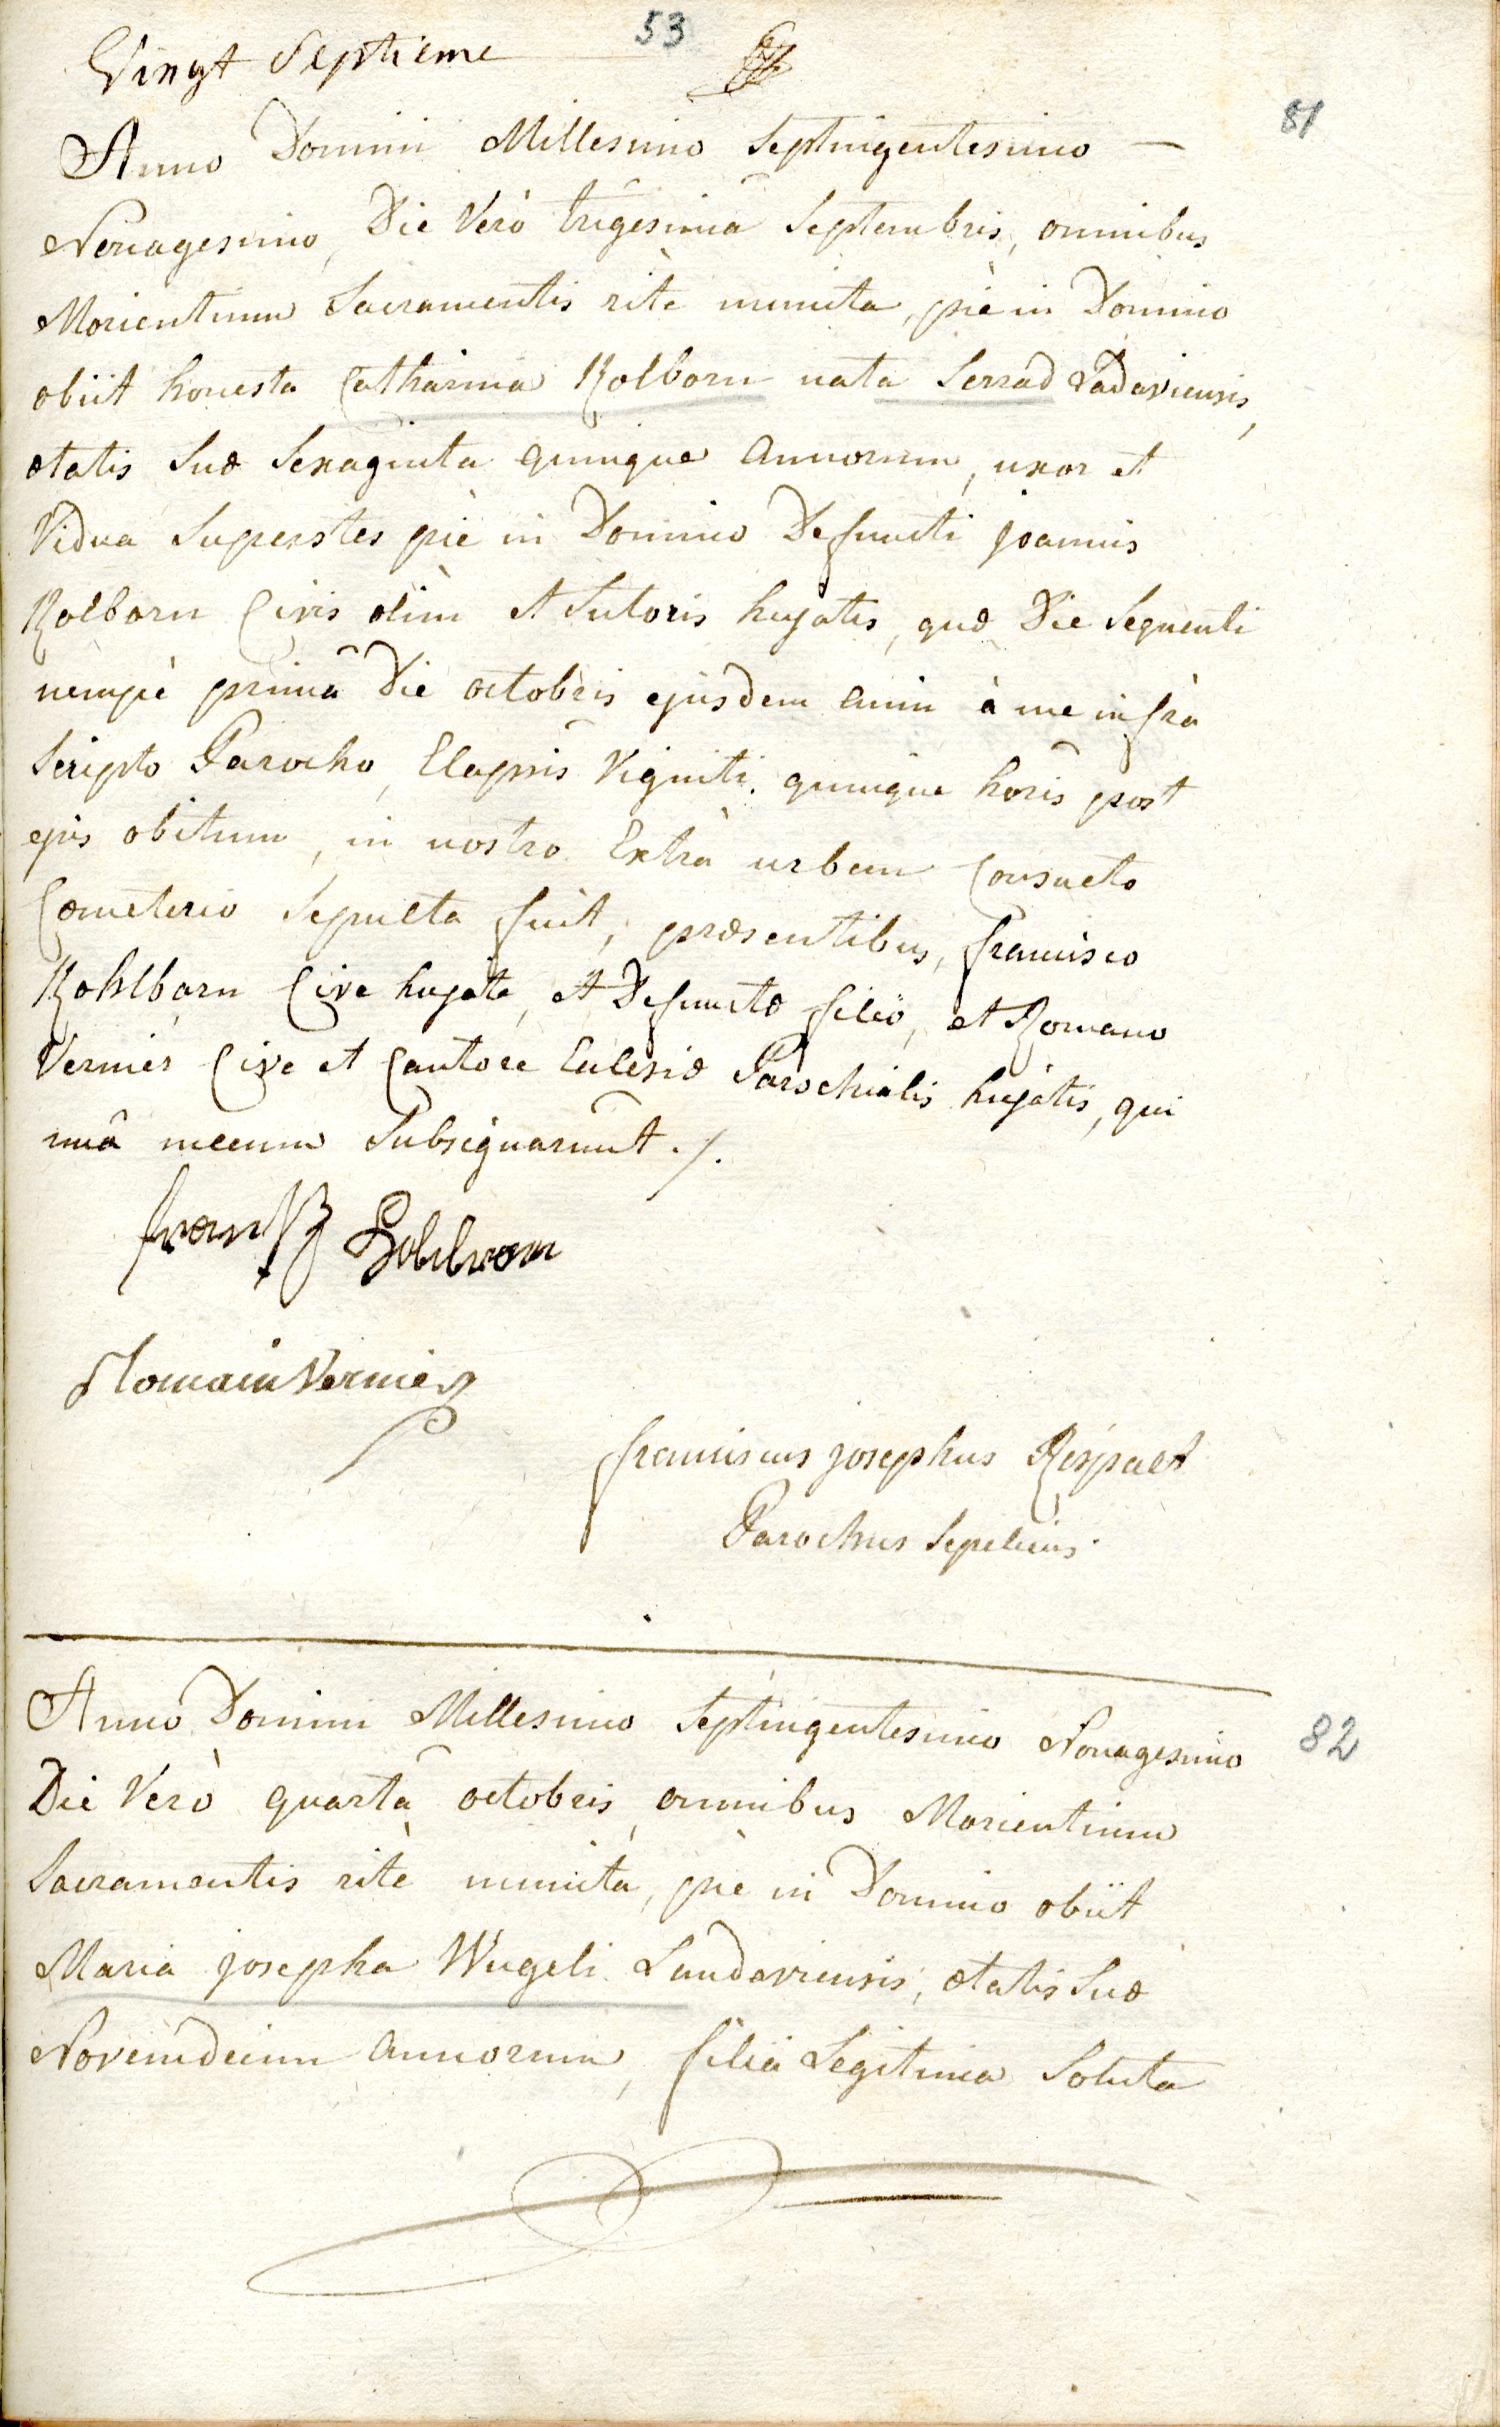 53
Vingt Septieme
81
Anno Domini Millesimo Septingentesimo —
Nonagesimo, Die Verò trigesimâ Septembris, omnibus
Morientium Sacramentis ritè munita, piè in Domino
obiit honesta Catharina Kolborn nata Serrad Ladaviensis,
ætatis Suæ Sexaginta quinque annorum, uxor et
Vidua Superstes piè in Domino Defuncti joannis
Kolborn Civis olim et Sutoris hujatis, quæ Die Sequenti
nempè primâ Die octobris ejusdem anni à me infrà
Scripto Parocho, Elapsis Viginti quinque horis post
ejus obitum, in nostro Extrà urbem Consueto
Cœmeterio Sepulta fuit, præsentibus, francisco
Kohlborn Cive hujate, et Defunctæ filio, et Romano
Vernier Cive et Cantore Ecclesiæ Parochialis hujatis, qui
unâ mecum Subsignarunt ./.
frantz
Romain Vernier
franciscus josephus Respalt
Parochus Sepeliens.
Anno Domini Millesimo Septingentesimo Nonagesimo
82
Die Verò quartâ octobris, omnibus Morientium
Sacramentis ritè munita, piè in Domino obiit
Maria josepha Wugeli Landaviensis, ætatis Suæ
Novemdecim annorum, filia Legitima Soluta